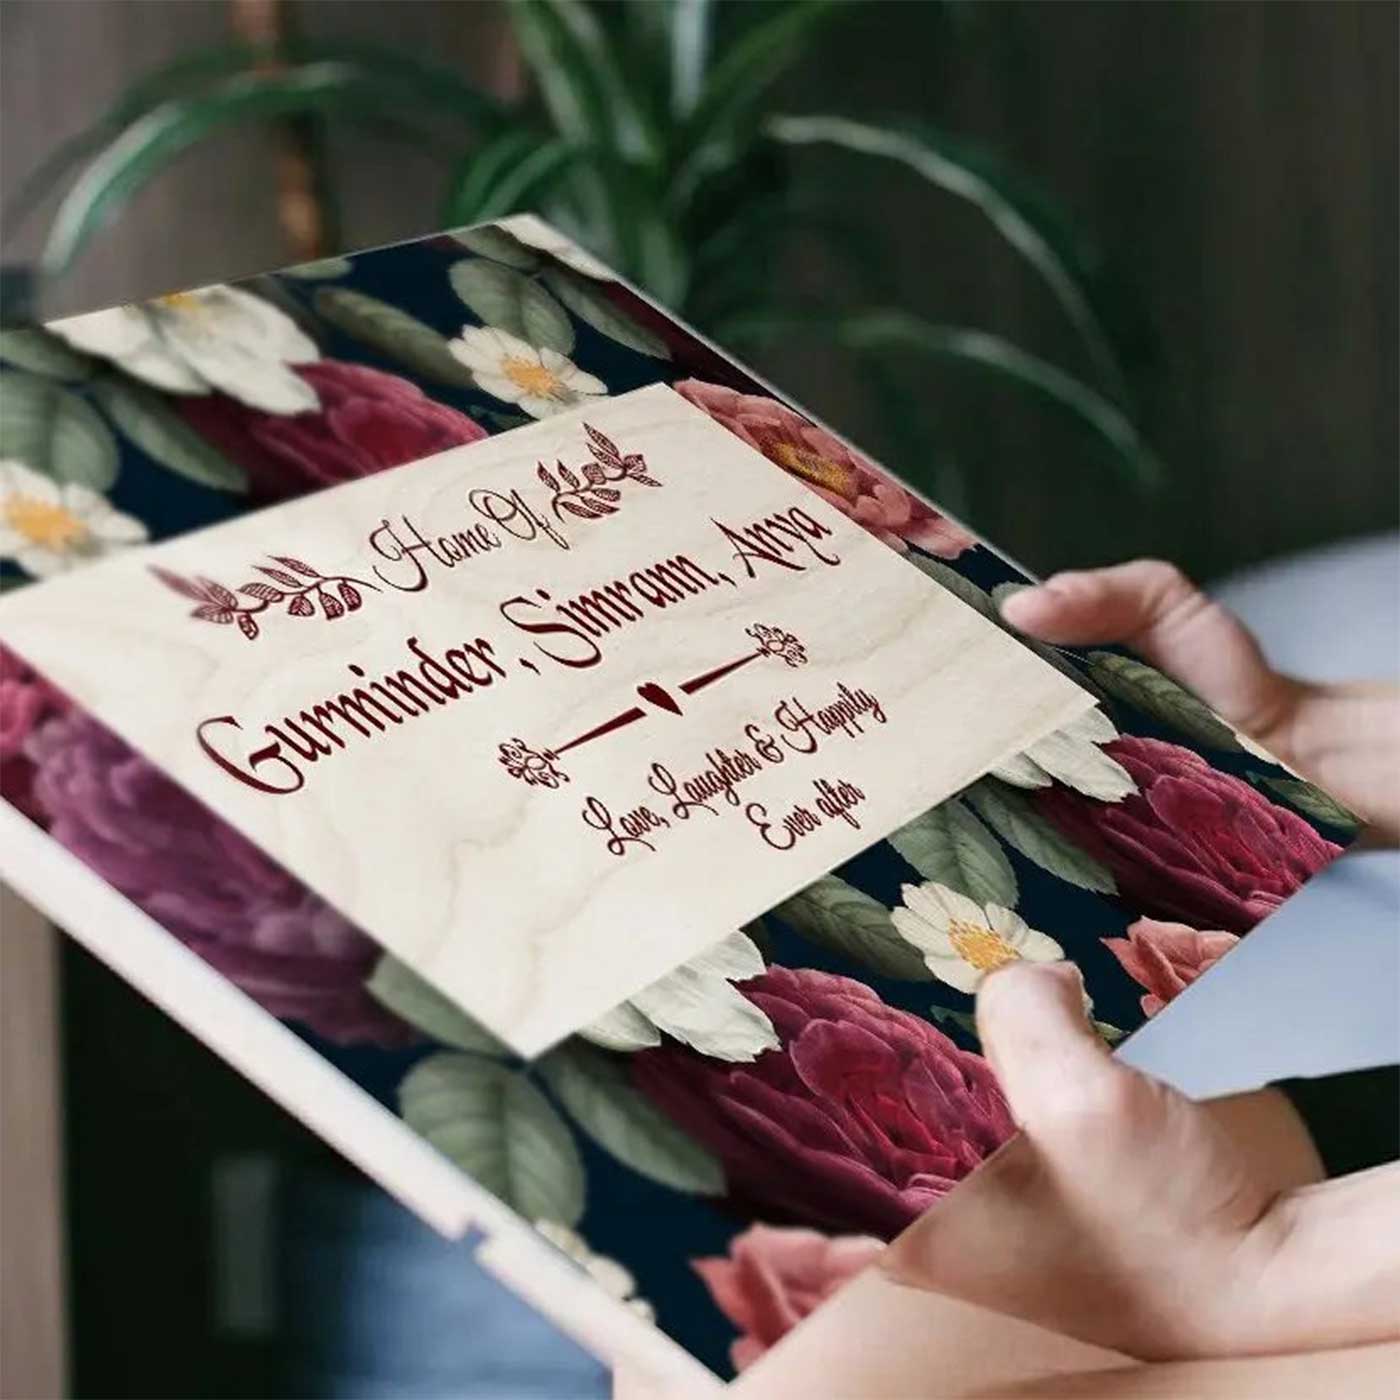 Home Of
Gurminder , Simrann, Arya
Love, Laughter & Happily
Ever after